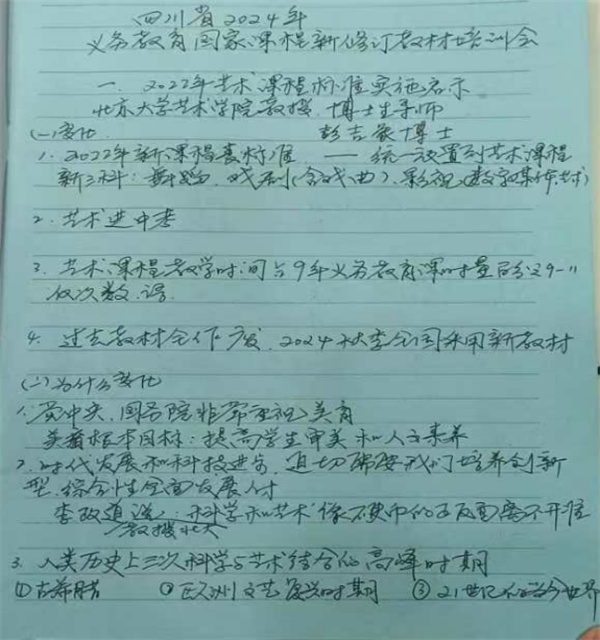 四川省2024年
义务教育国家课程新修订教材培训会
一、2022年艺术课程标准实施启示
北京大学艺术学院教授 博士生导师
(一)变化 彭吉象博士
1. 2022年新课程标准——统一设置到艺术课程
新三科：舞蹈、戏剧(含戏曲)、影视(数字媒体艺术)
2. 艺术进中考
3. 艺术课程教学时间占9年义务教育课时量百分之9-11
仅次数、语。
4. 过去教材全作废，2024秋季全国采用新教材
(二)为什么变化
1. 党中央、国务院非常重视美育
美育根本目标：提高学生审美和人文素养
2. 时代发展和科技进步，迫切需要我们培养创新
型、综合性全面发展人材
李政道说：科学和艺术像硬币的正反面离不开谁
教授
3. 人类历史上三次科学与艺术结合的高峰时期
①古希腊 ②欧洲文艺复兴时期 ③21世纪的当今世界